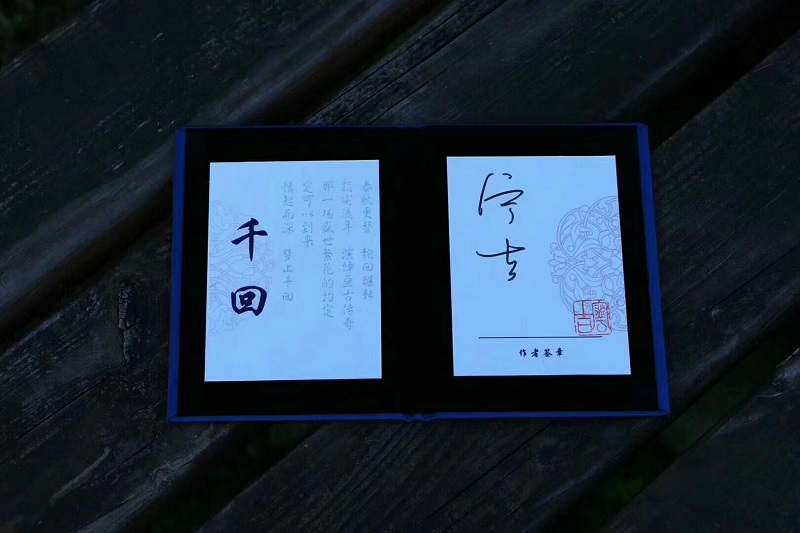 春秋更替 轮回辗转
指尖流年 演绎亘古传奇
那一场盛世繁花的约定
定可以到来
情起而深 梦止千回
千回
作者签章